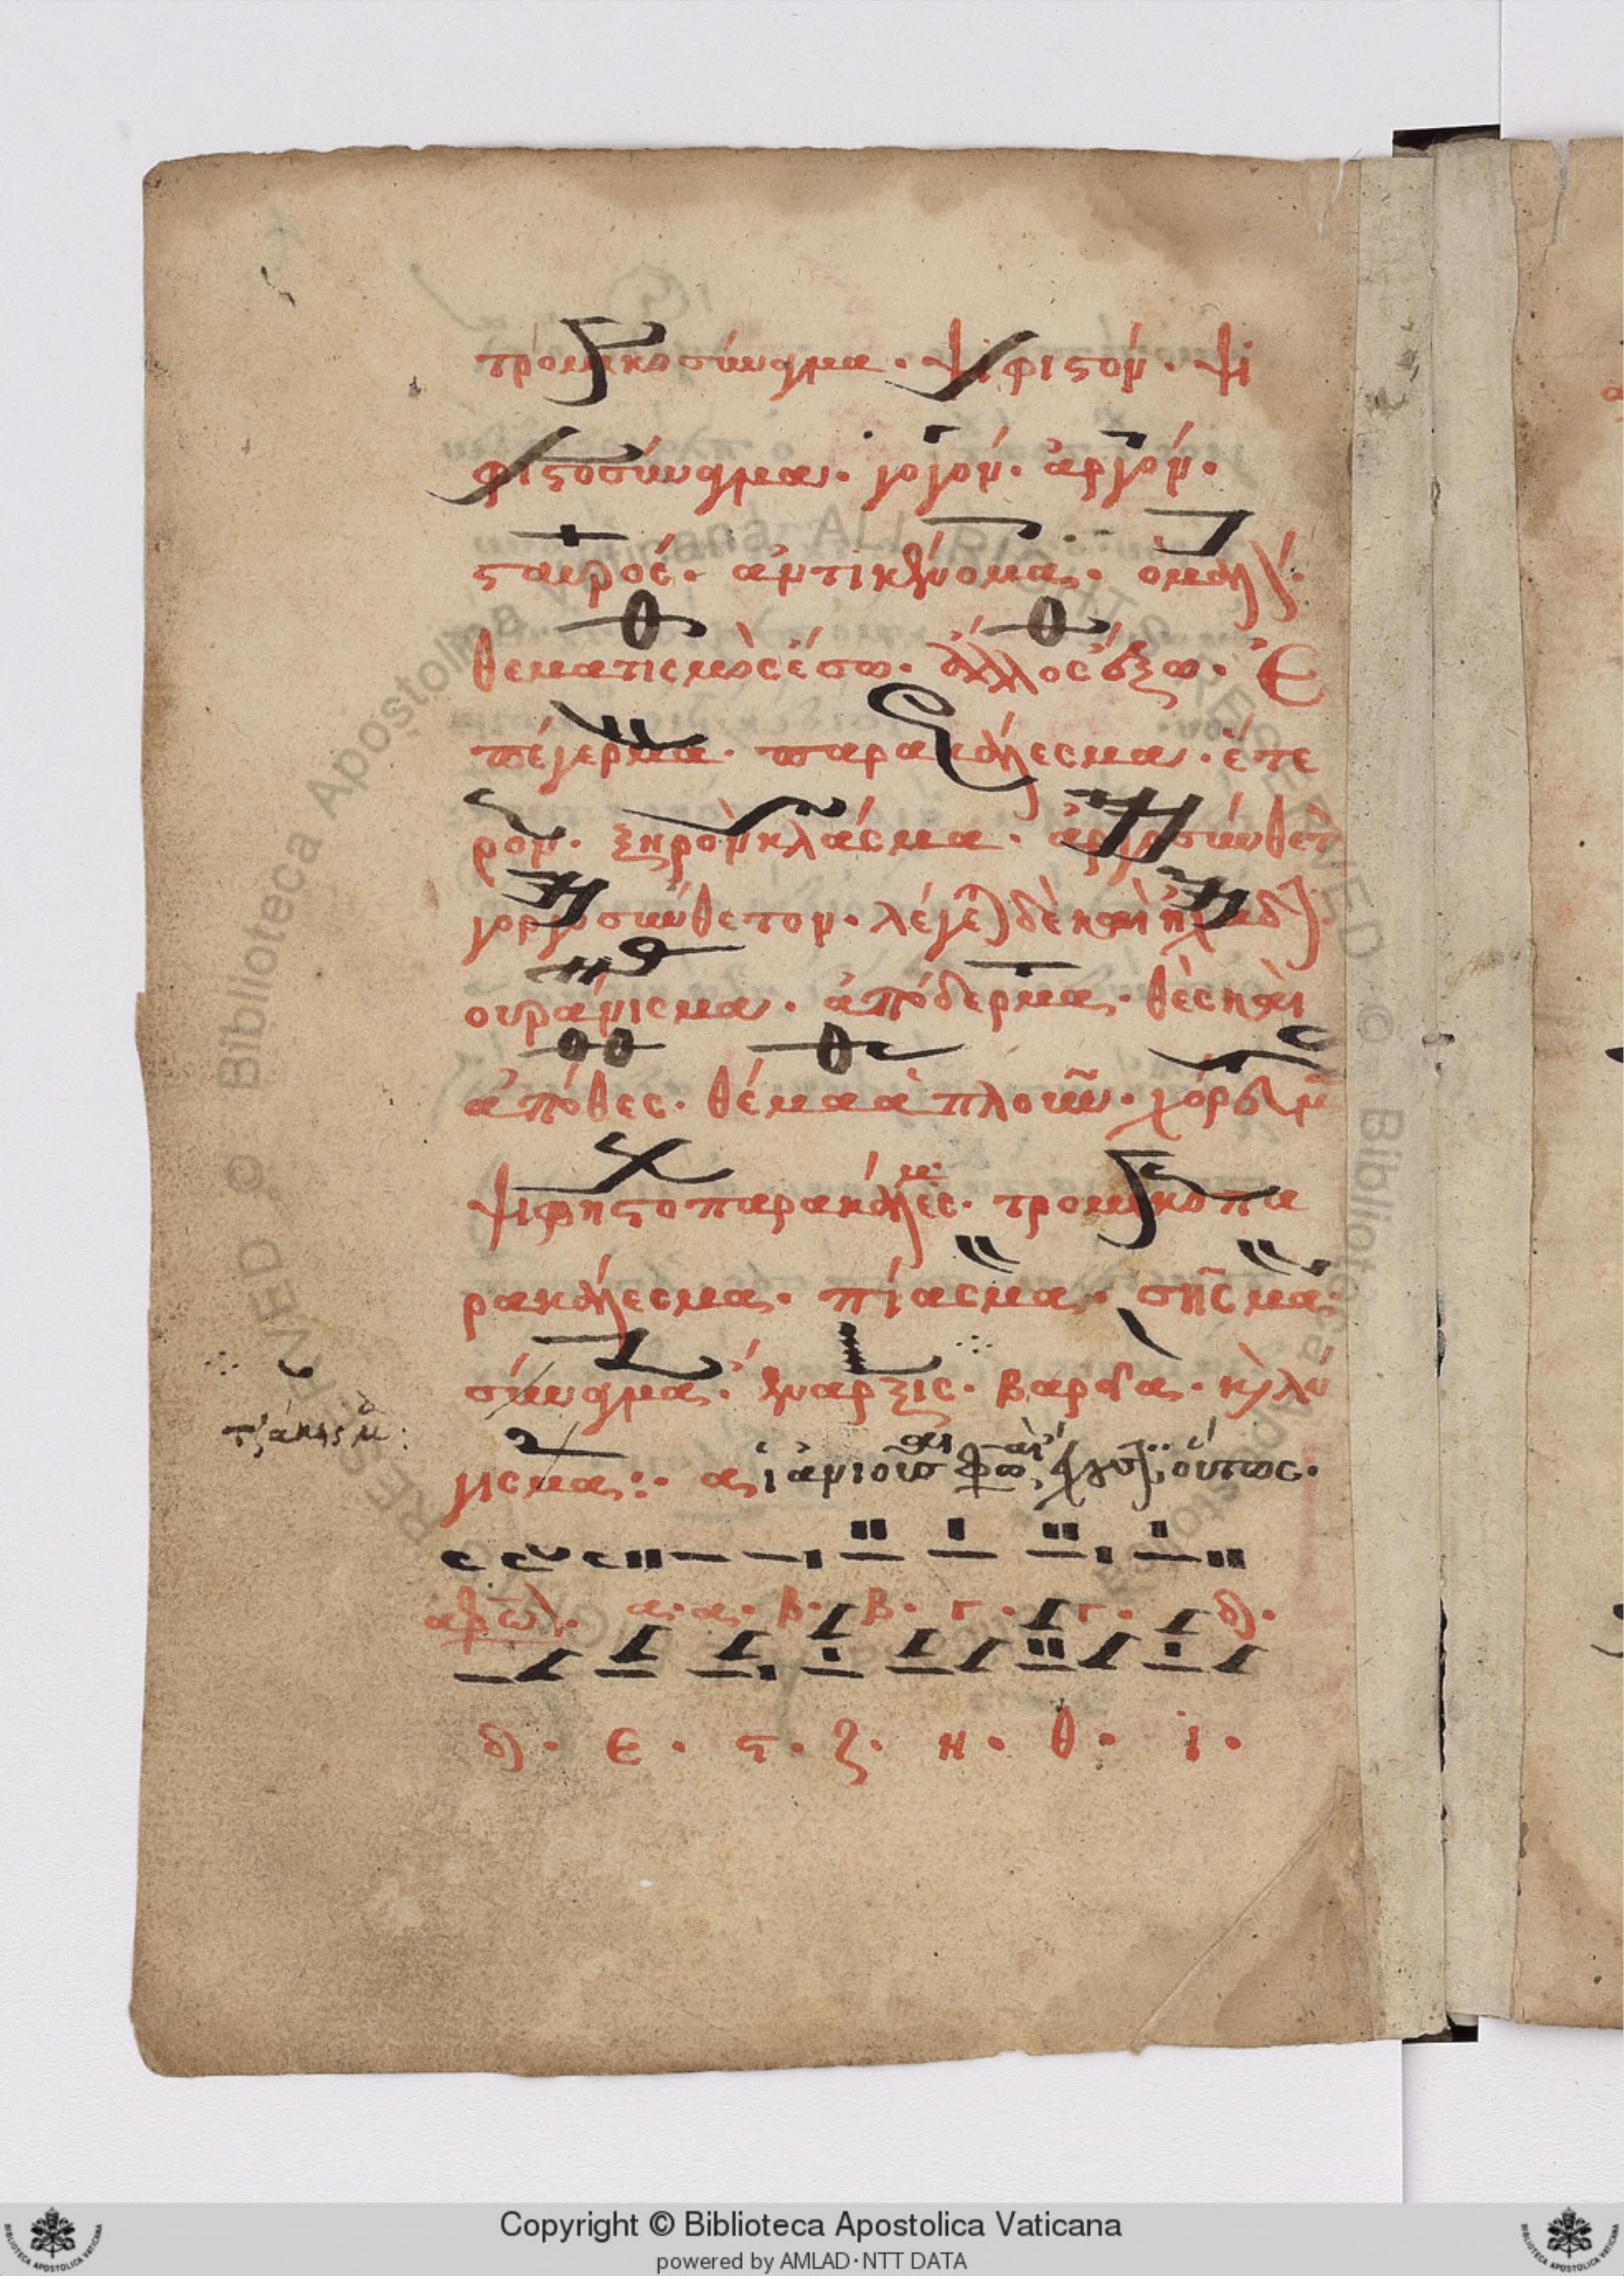 τρομικοσύναγμα · ψιφιστόν · ψι
φιστοσύναγμα · γοργόν · ἀργόν ·
σταυρός · ἀντικένωμα · ὁμαλόν ·
θεματισμὸς ἔσω · ἄλλος ἔξω · Ἐ
πέγερμα · παρακάλεσμα · ἕτε
ρον · ξηρὸν κλάσμα · ἀργοσύνθετ
γοργοσύνθετον · λέγεται δὲ καὶ
οὐράνισμα · ἀπόδερμα · θὲς καὶ
ἀπόθες · θέμα ἁπλοῦν · χόρευμ
ψιφηστοπαρακάλεσμα · τρομικοπα
ρακάλεσμα · πίασμα · σεῖσμα
σύναγμα · ἔναρξις · βαρεῖα · κύλι
τζάκισμα:
γισμα:· αἱ οὕτως ·
α · α · β · β · γ · γ · δ ·
δ · ε · ς · ζ · η · θ · ι ·
Copyright © Biblioteca Apostolica Vaticana
powered by AMLAD·NTT DATA